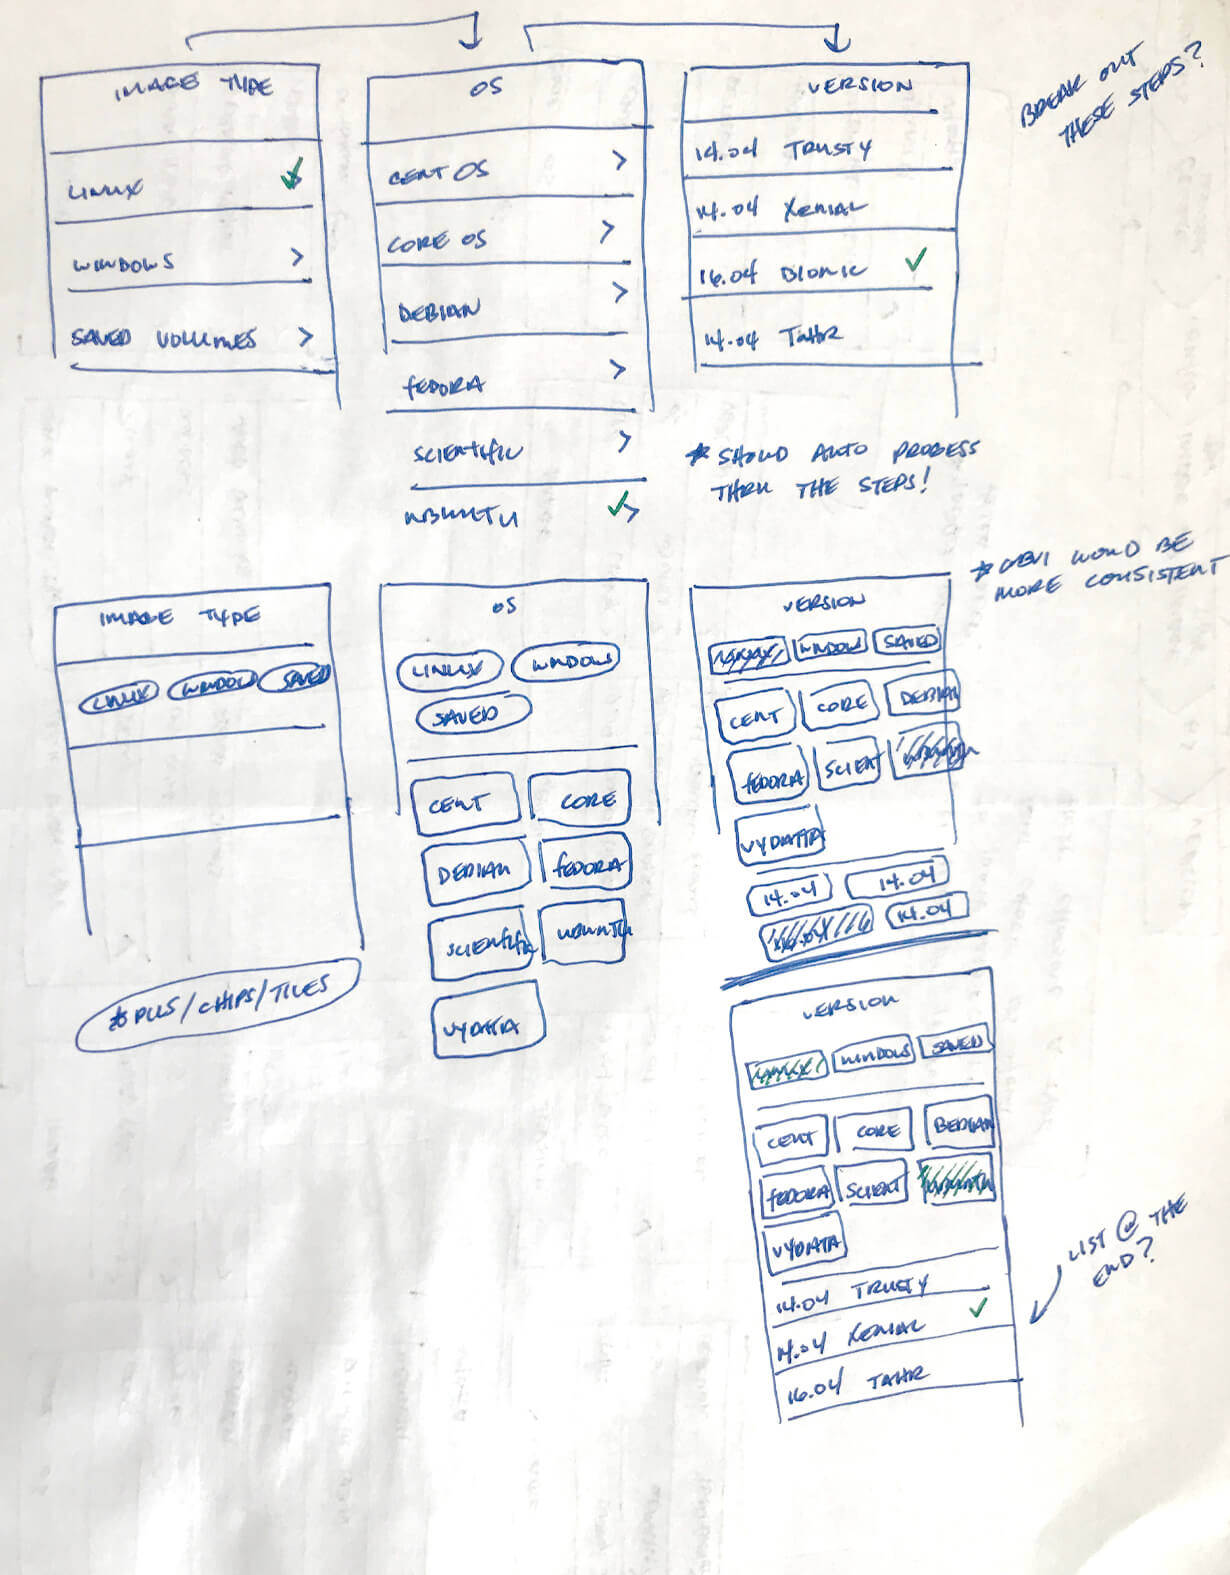 IMAGE TYPE
LINUX
WINDOWS
SAVED VOLUMES
OS
CENT OS
CORE OS
DEBIAN
FEDORA
SCIENTIFIC
UBUNTU
VERSION
14.04 TRUSTY
14.04 XENIAL
16.04 BIONIC
14.04 TAHR
BREAK OUT
THESE STEPS?
* SHOULD AUTO PROGRESS
THRU THE STEPS!
IMAGE TYPE
LINUX WINDOWS SAVED
* PILLS/CHIPS/TILES
OS
LINUX WINDOWS
SAVED
CENT CORE
DEBIAN FEDORA
SCIENTIFIC UBUNTU
VYDATTA
* WOULD BE
MORE CONSISTENT
VERSION
LINUX WINDOW SAVED
CENT CORE DEBIAN
FEDORA SCIENT
VYDATTA
14.04 14.04
16.04 14.04
VERSION
LINUX WINDOWS SAVED
CENT CORE BEDIAN
FEDORA SCIENT UBUNTU
VYDATA
14.04 TRUSTY
14.04 XENIAL
16.04 TAHR
LIST @ THE
END?